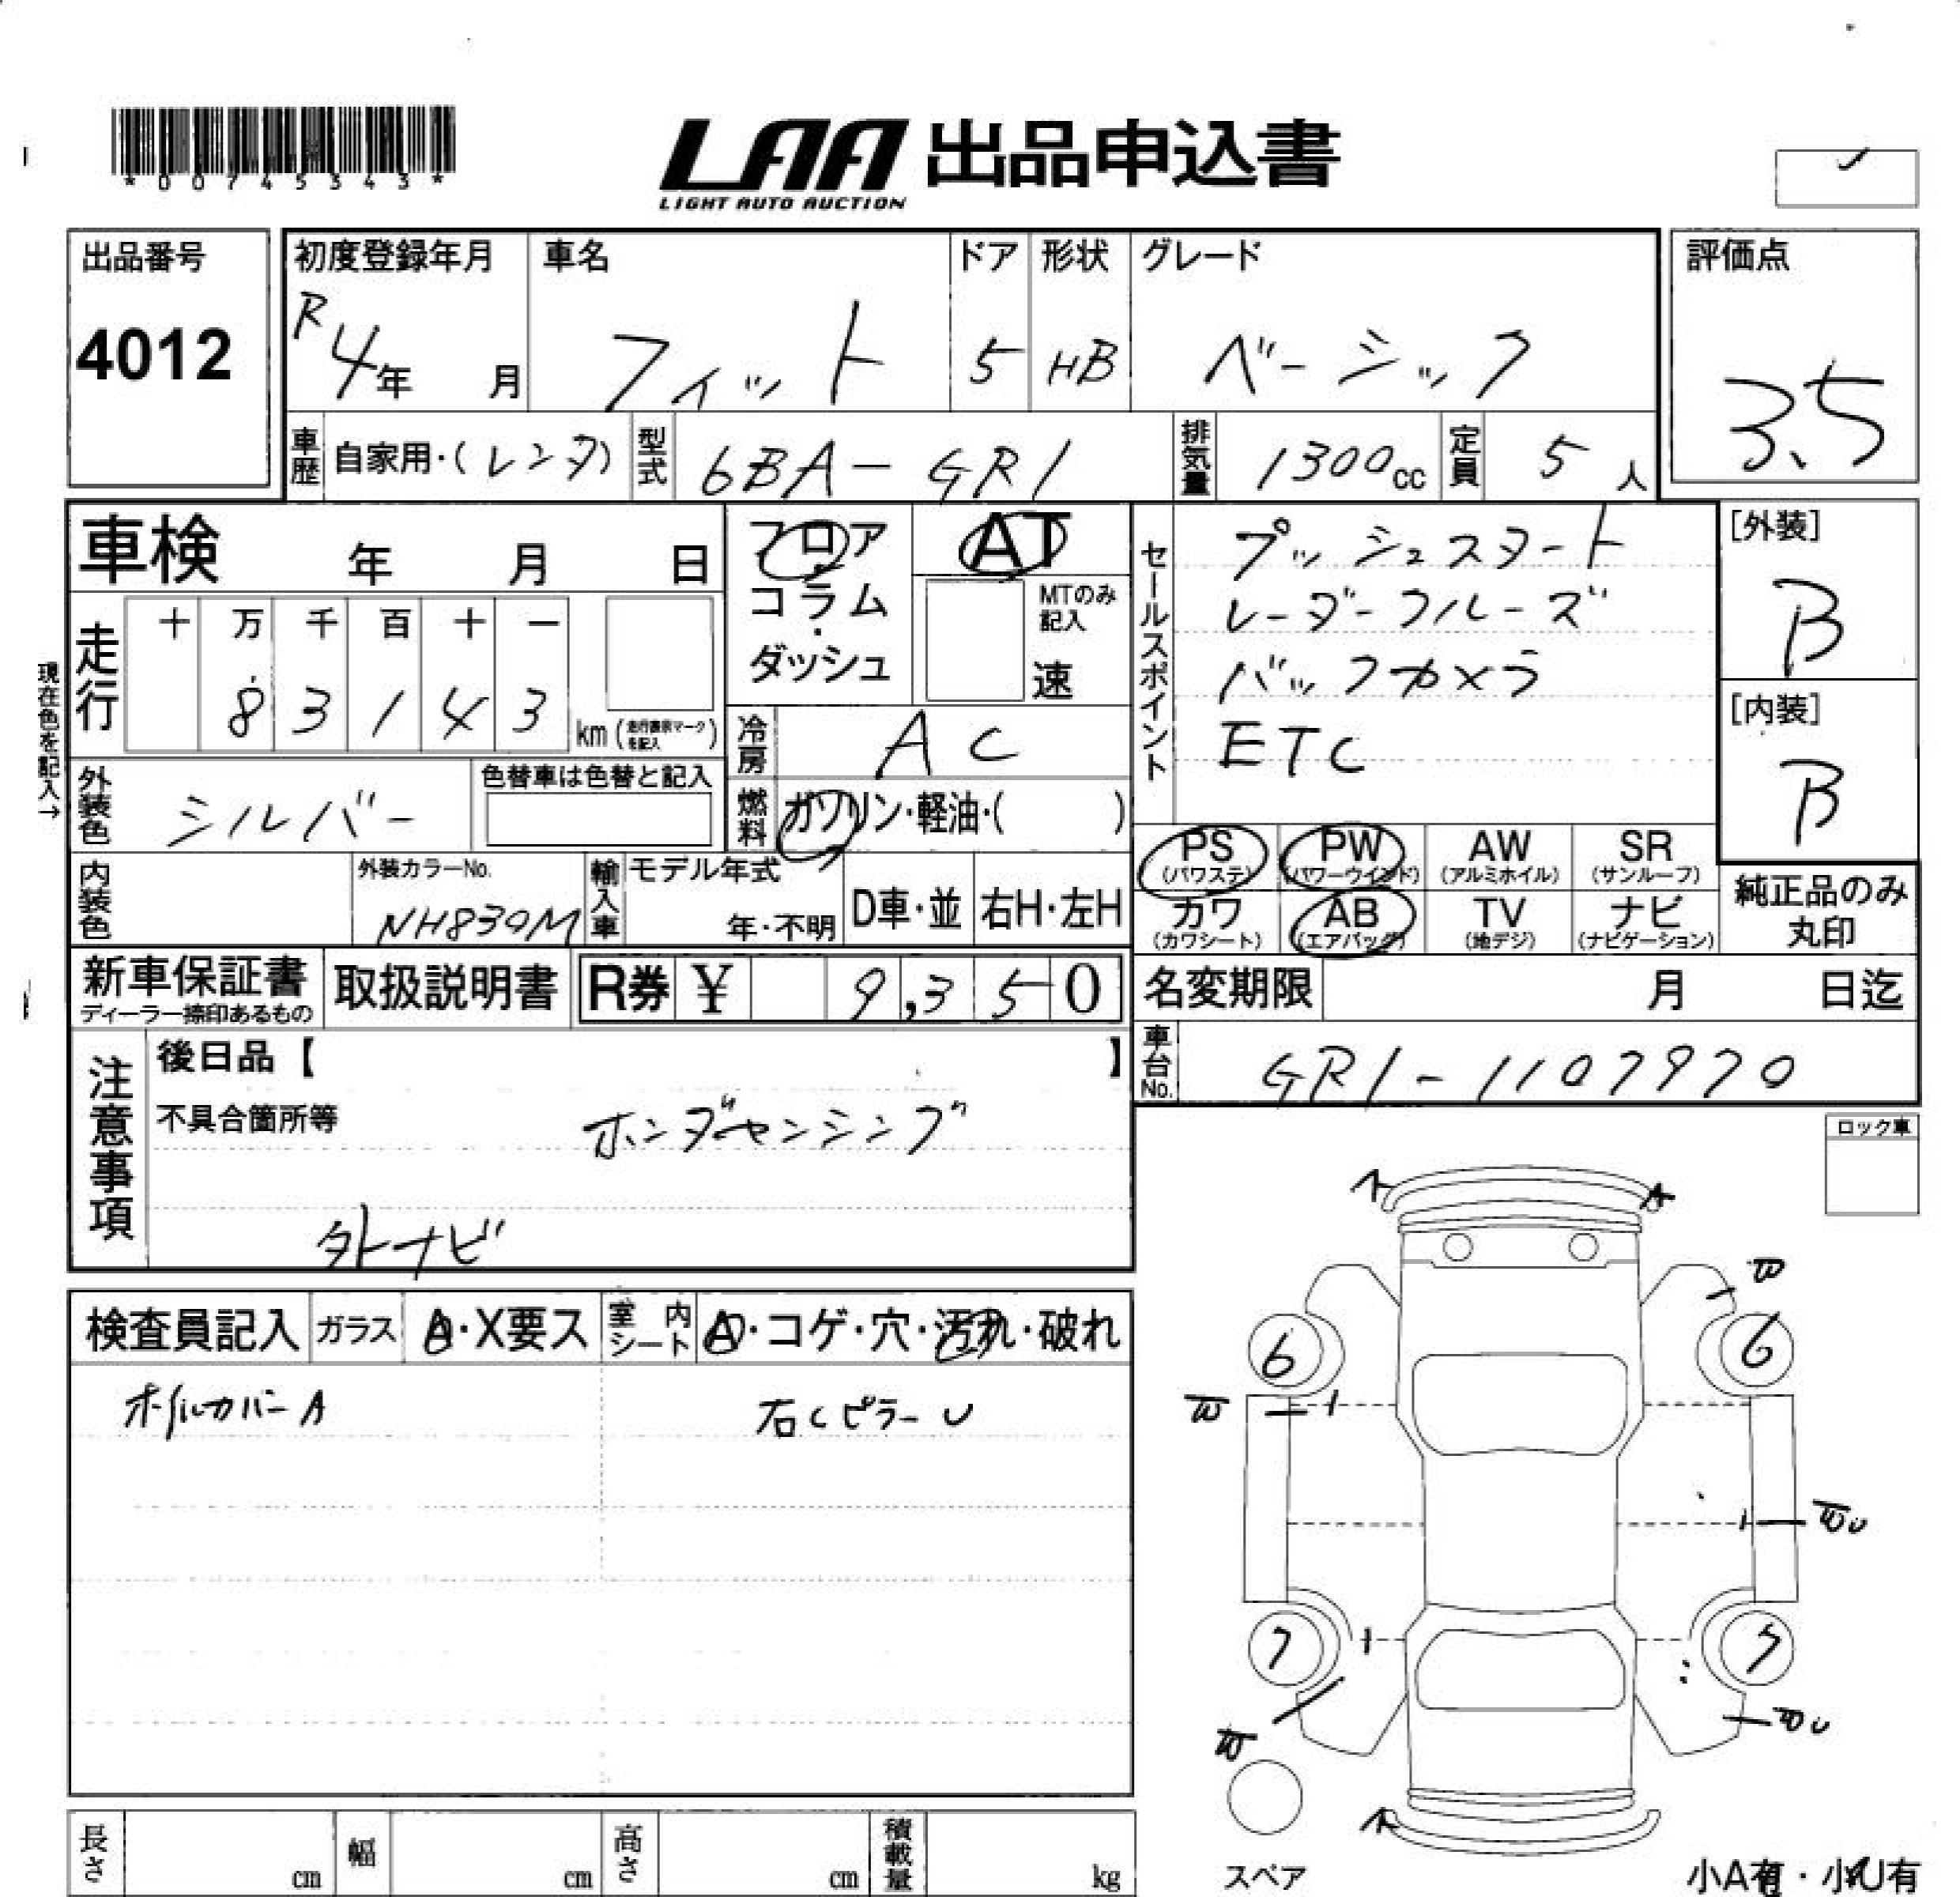 *00745343*
LAA 出品申込書
LIGHT AUTO AUCTION
出品番号
4012
初度登録年月
R4年 月
車名
フィット
ドア
5
形状
HB
グレード
ベーシック
評価点
3.5
車歴 自家用・(レンタ)
型式 6BA-GR1
排気量 1300cc
定員 5人
車検 年 月 日
フロア・コラム・ダッシュ
AT
MTのみ記入
速
セールスポイント
プッシュスタート
レーダークルーズ
バックカメラ
ETC
[外装]
B
[内装]
B
現在色を記入→
走行 十 万 千 百 十 一
8 3 1 4 3 km(走行表示マークを記入)
冷房 AC
外装色 シルバー
色替車は色替と記入
燃料 ガソリン・軽油・( )
PS (パワステ)
PW (パワーウインド)
AW (アルミホイル)
SR (サンルーフ)
カワ (カワシート)
AB (エアバッグ)
TV (地デジ)
ナビ (ナビゲーション)
純正品のみ丸印
内装色
外装カラーNo.
NH830M
輸入車 モデル年式
年・不明
D車・並
右H・左H
新車保証書
ディーラー捺印あるもの
取扱説明書
R券 ¥ 9,350
名変期限 月 日迄
車台No. GR1-1107970
注意事項
後日品【 】
不具合箇所等
ホンダセンシング
外ナビ
ロック車
検査員記入
ガラス A・X要ス
室内シート A・コゲ・穴・汚れ・破れ
ホイルカバーA
右Cピラー U
A
A
6
6
7
A
スペア
長さ cm
幅 cm
高さ cm
積載量 kg
小A有・小U有